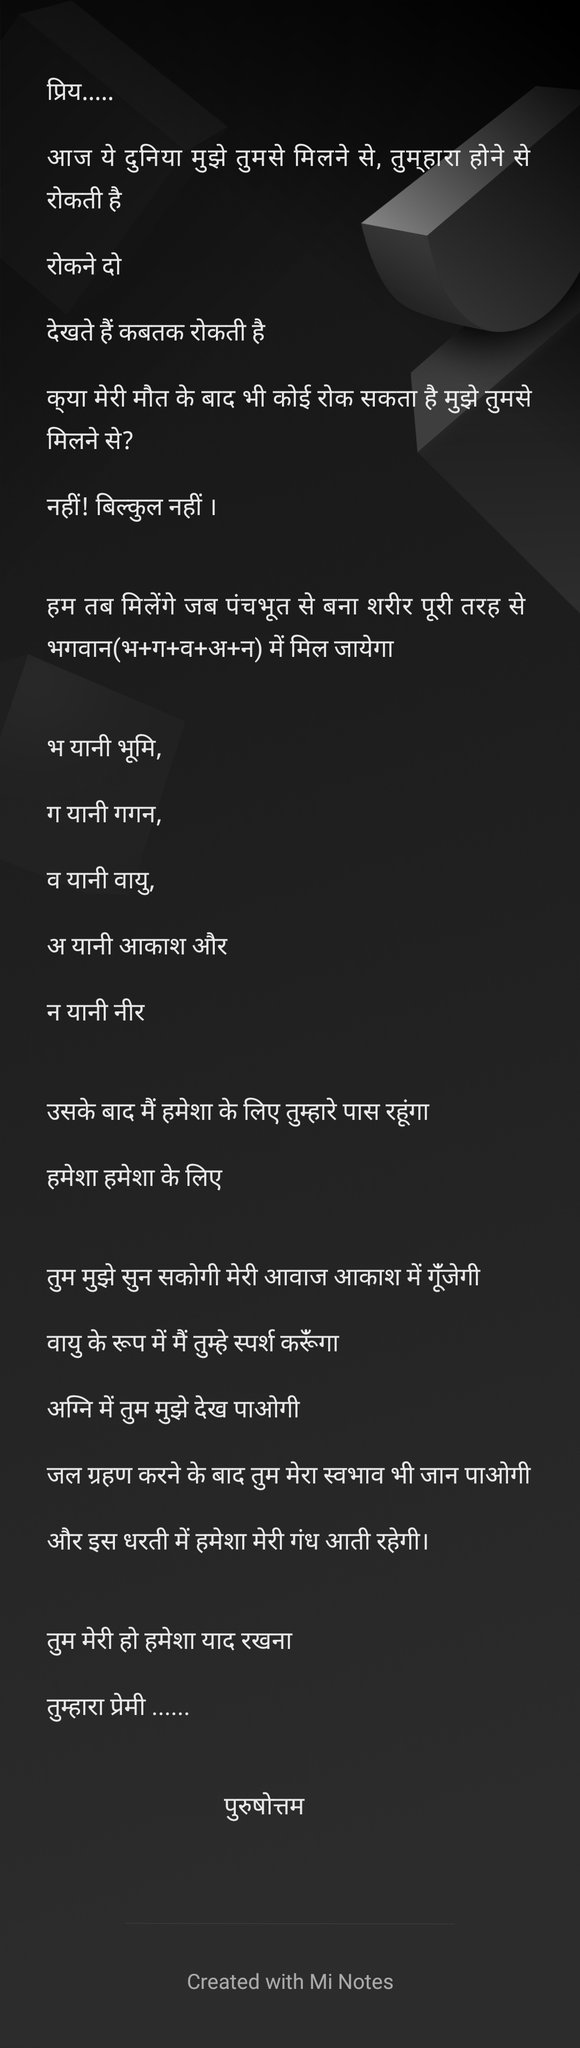 प्रिय.....
आज ये दुनिया मुझे तुमसे मिलने से, तुम्हारा होने से
रोकती है
रोकने दो
देखते हैं कबतक रोकती है
क्या मेरी मौत के बाद भी कोई रोक सकता है मुझे तुमसे
मिलने से?
नहीं! बिल्कुल नहीं ।
हम तब मिलेंगे जब पंचभूत से बना शरीर पूरी तरह से
भगवान(भ+ग+व+अ+न) में मिल जायेगा
भ यानी भूमि,
ग यानी गगन,
व यानी वायु,
अ यानी आकाश और
न यानी नीर
उसके बाद मैं हमेशा के लिए तुम्हारे पास रहूंगा
हमेशा हमेशा के लिए
तुम मुझे सुन सकोगी मेरी आवाज आकाश में गूँजेगी
वायु के रूप में मैं तुम्हे स्पर्श करूँगा
अग्नि में तुम मुझे देख पाओगी
जल ग्रहण करने के बाद तुम मेरा स्वभाव भी जान पाओगी
और इस धरती में हमेशा मेरी गंध आती रहेगी।
तुम मेरी हो हमेशा याद रखना
तुम्हारा प्रेमी ......
पुरुषोत्तम
Created with Mi Notes